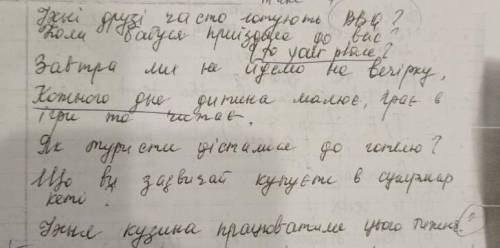 Їхні друзі часто готують BBQ?
Коли бабуся приїздила до вас?
(to your place?
Завтра ми не йдемо на вечірку.
Кожного дня дитина малює, грає в
ігри та читає.
Як туристи дістались до готелю?
Що ви зазвичай купуєте в супермар
кеті?
Їхня кузина працюватиме цього тижня?